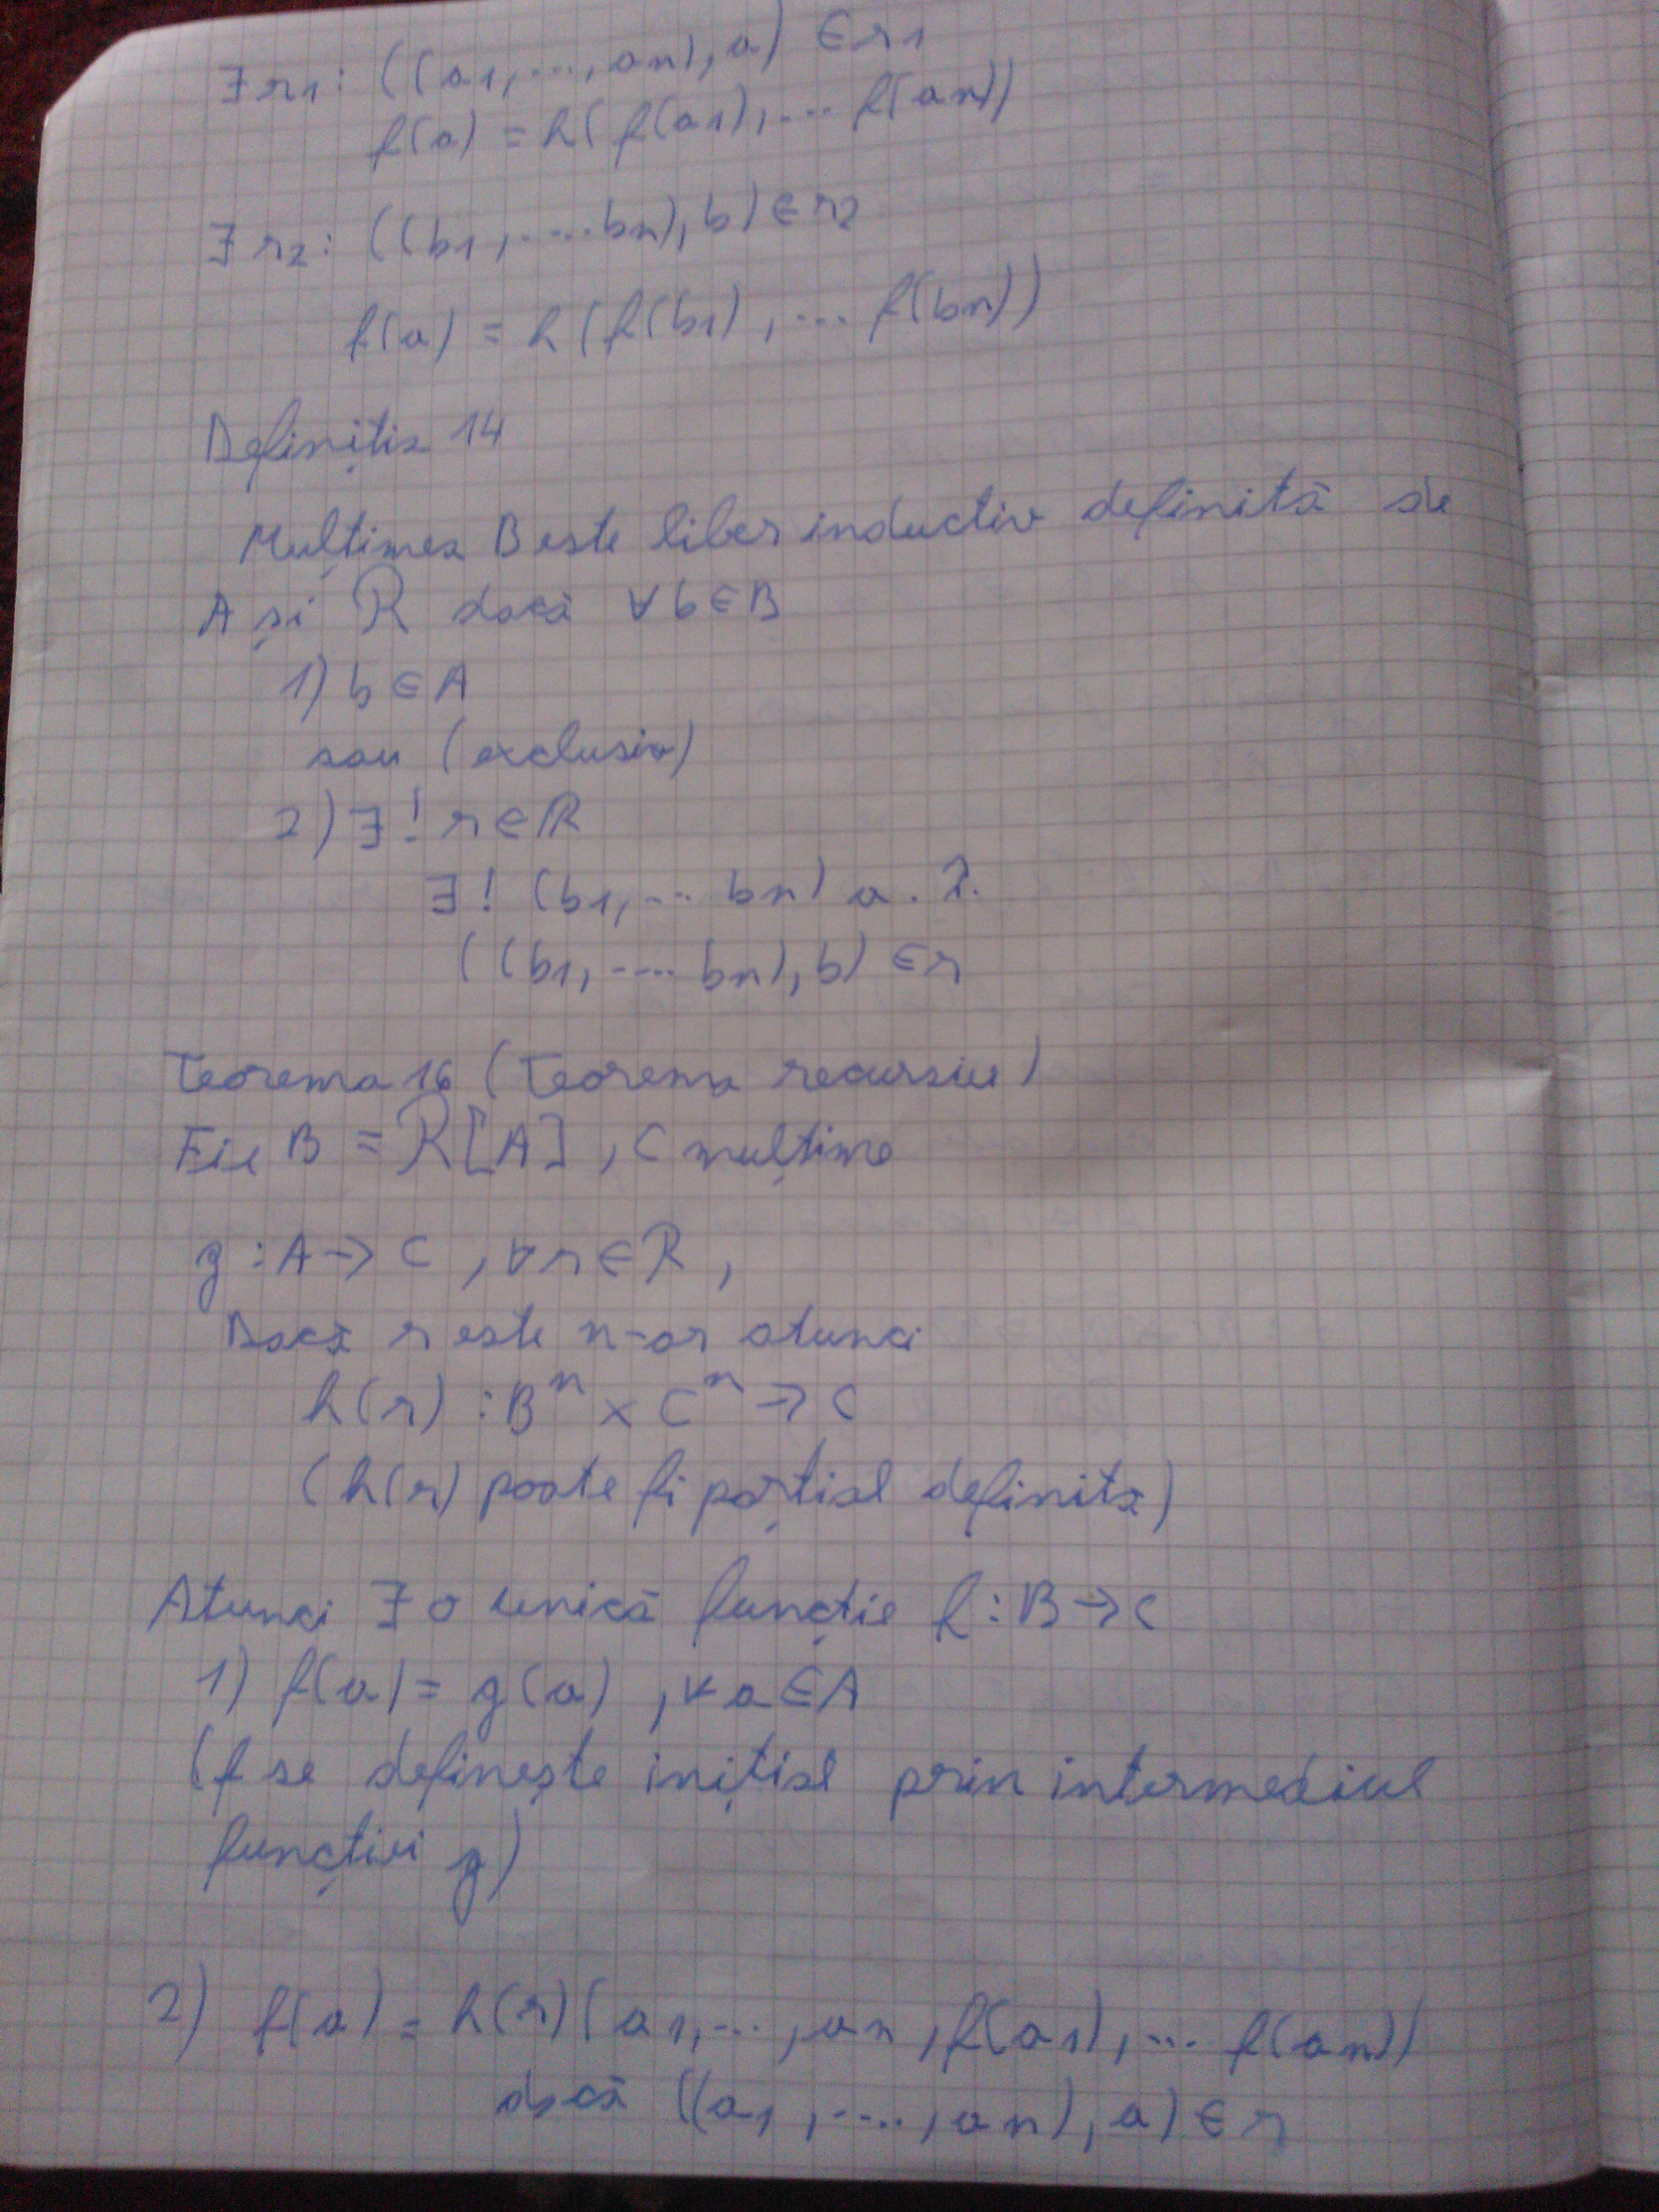 ∃ r1: ((a1, ..., an), a) ∈ r1
f(a) = h(f(a1), ... f(an))
∃ r2: ((b1, .... bn), b) ∈ r2
f(a) = h(f(b1), ... f(bn))
Definiția 14
Mulțimea B este liber inductiv definită de
A și R dacă ∀ b ∈ B
1) b ∈ A
sau (exclusiv)
2) ∃! r ∈ R
∃! (b1, ... bn) a. î.
((b1, .... bn), b) ∈ r
Teorema 16 (Teorema recursiei)
Fie B = R[A], C mulțime
g : A → C, ∀ r ∈ R,
Dacă r este n-ar atunci
h(r) : Bⁿ × Cⁿ → C
(h(r) poate fi parțial definită)
Atunci ∃ o unică funcție f : B → C
1) f(a) = g(a), ∀ a ∈ A
(f se definește inițial prin intermediul
funcției g)
2) f(a) = h(r)(a1, ..., an, f(a1), ... f(an))
dacă ((a1, ...., an), a) ∈ r